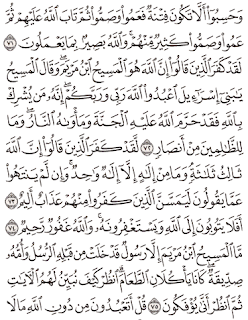 وَحَسِبُوٓا۟ أَلَّا تَكُونَ فِتْنَةٌ فَعَمُوا۟ وَصَمُّوا۟ ثُمَّ تَابَ ٱللَّهُ عَلَيْهِمْ ثُمَّ
عَمُوا۟ وَصَمُّوا۟ كَثِيرٌ مِّنْهُمْ ۚ وَٱللَّهُ بَصِيرٌۢ بِمَا يَعْمَلُونَ ٧١
لَقَدْ كَفَرَ ٱلَّذِينَ قَالُوٓا۟ إِنَّ ٱللَّهَ هُوَ ٱلْمَسِيحُ ٱبْنُ مَرْيَمَ ۖ وَقَالَ ٱلْمَسِيحُ
يَٰبَنِىٓ إِسْرَٰٓءِيلَ ٱعْبُدُوا۟ ٱللَّهَ رَبِّى وَرَبَّكُمْ ۖ إِنَّهُۥ مَن يُشْرِكْ
بِٱللَّهِ فَقَدْ حَرَّمَ ٱللَّهُ عَلَيْهِ ٱلْجَنَّةَ وَمَأْوَىٰهُ ٱلنَّارُ ۖ وَمَا
لِلظَّٰلِمِينَ مِنْ أَنصَارٍ ٧٢ لَّقَدْ كَفَرَ ٱلَّذِينَ قَالُوٓا۟ إِنَّ ٱللَّهَ
ثَالِثُ ثَلَٰثَةٍ ۘ وَمَا مِنْ إِلَٰهٍ إِلَّآ إِلَٰهٌ وَٰحِدٌ ۚ وَإِن لَّمْ يَنتَهُوا۟
عَمَّا يَقُولُونَ لَيَمَسَّنَّ ٱلَّذِينَ كَفَرُوا۟ مِنْهُمْ عَذَابٌ أَلِيمٌ ٧٣
أَفَلَا يَتُوبُونَ إِلَى ٱللَّهِ وَيَسْتَغْفِرُونَهُۥ ۚ وَٱللَّهُ غَفُورٌ رَّحِيمٌ ٧٤
مَّا ٱلْمَسِيحُ ٱبْنُ مَرْيَمَ إِلَّا رَسُولٌ قَدْ خَلَتْ مِن قَبْلِهِ ٱلرُّسُلُ وَأُمُّهُۥ
صِدِّيقَةٌ ۖ كَانَا يَأْكُلَانِ ٱلطَّعَامَ ۗ ٱنظُرْ كَيْفَ نُبَيِّنُ لَهُمُ ٱلْءَايَٰتِ
ثُمَّ ٱنظُرْ أَنَّىٰ يُؤْفَكُونَ ٧٥ قُلْ أَتَعْبُدُونَ مِن دُونِ ٱللَّهِ مَا لَا